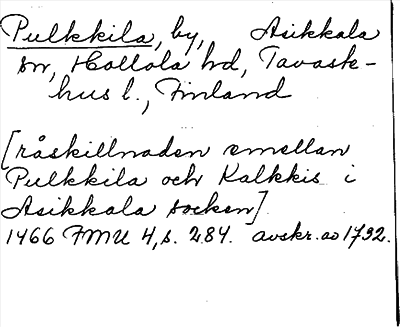 Pulkkila, by, Asikkala
sn, Hollola hd, Tavast-
hus l., Finland
[råskillnaden emellan
Pulkkila och Kalkkis i
Asikkala socken]
1466 FMU 4, s. 284. avskr. ao 1792.